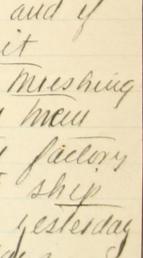 and if
it
Threshing
men
factory
ship
yesterday